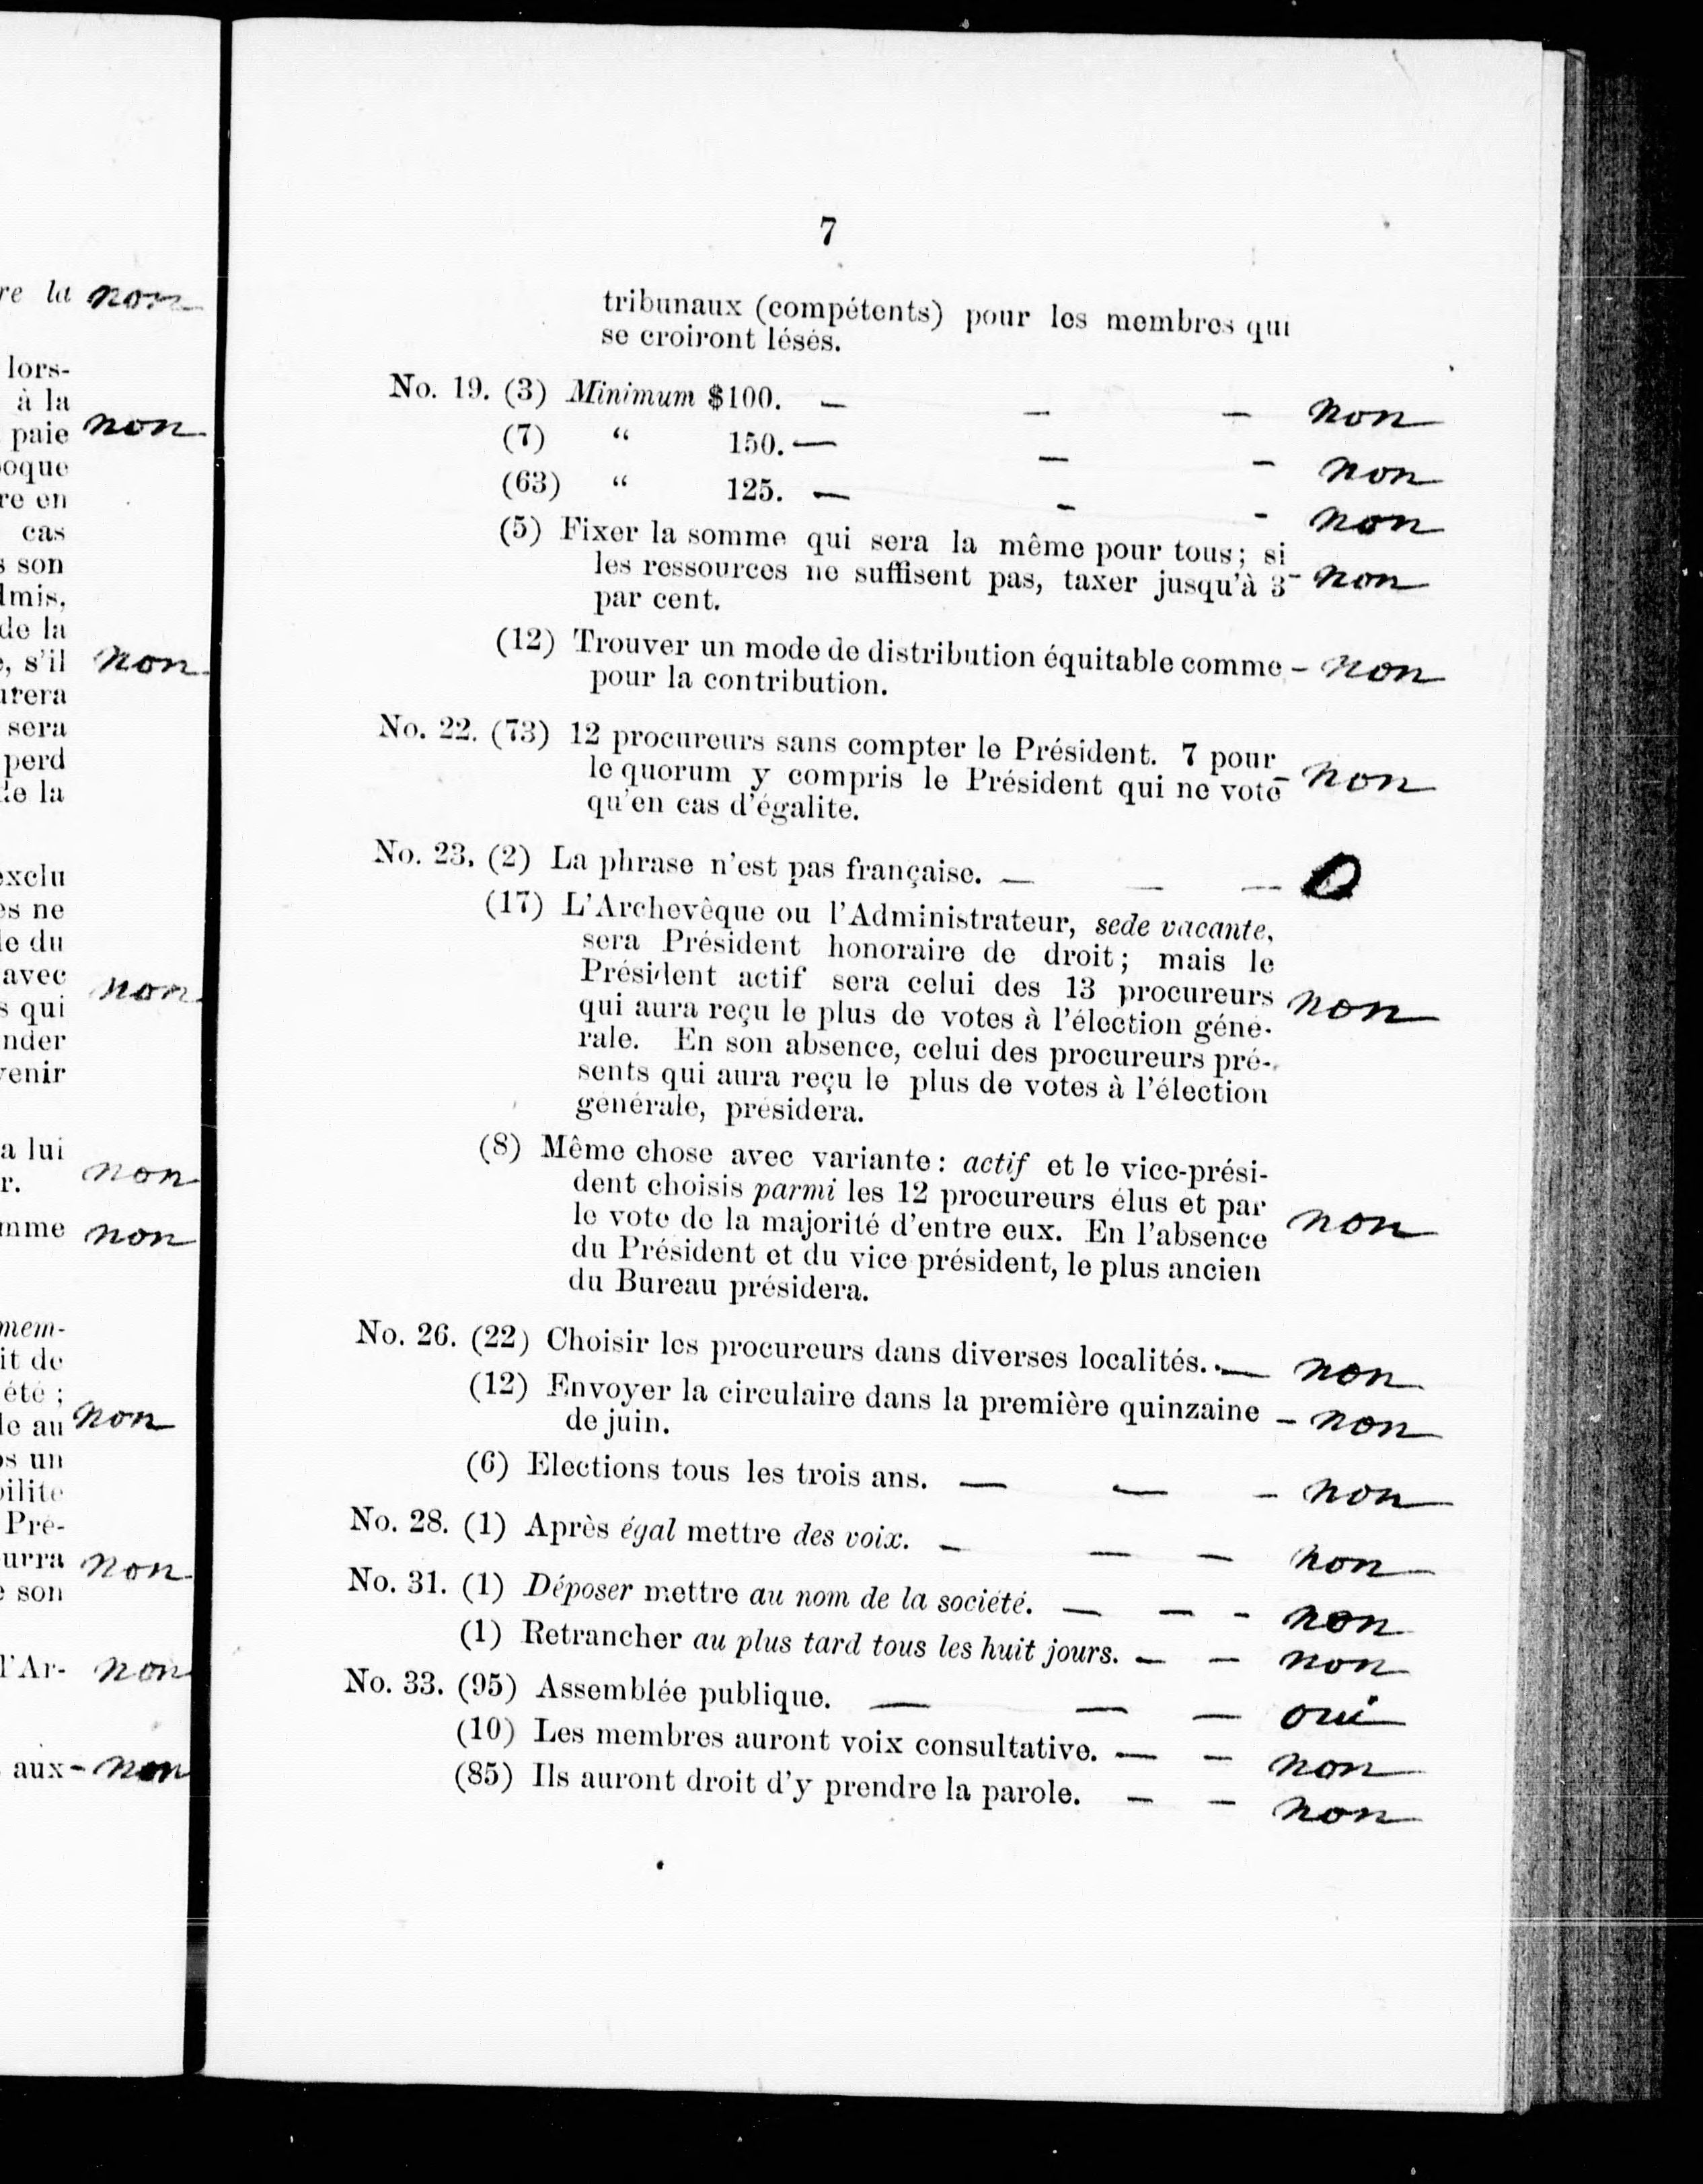 re la non
lors-
à la
paie non
oque
re en
cas
s son
dmis,
de la
e, s'il non
urera
sera
perd
de la
exclu
es ne
le du
avec
non
s qui
nder
venir
a lui
r. non
mme non
mem-
it de
été ;
le au non
os un
bilité
Pré-
urra non
e son
l'Ar- non
aux - non
7
tribunaux (compétents) pour les membres qui
se croiront lésés.
No. 19. (3) Minimum $100. — — — non
(7) “ 150. — — — non
(63) “ 125. — — - non
(5) Fixer la somme qui sera la même pour tous; si
les ressources ne suffisent pas, taxer jusqu'à 3 - non
par cent.
(12) Trouver un mode de distribution équitable comme - non
pour la contribution.
No. 22. (73) 12 procureurs sans compter le Président. 7 pour
le quorum y compris le Président qui ne vote - non
qu'en cas d'égalite.
No. 23. (2) La phrase n'est pas française. — — — O
(17) L'Archevêque ou l'Administrateur, sede vacante,
sera Président honoraire de droit; mais le
Président actif sera celui des 13 procureurs non
qui aura reçu le plus de votes à l'élection géné-
rale. En son absence, celui des procureurs pré-
sents qui aura reçu le plus de votes à l'élection
générale, présidera.
(8) Même chose avec variante: actif et le vice-prési-
dent choisis parmi les 12 procureurs élus et par
le vote de la majorité d'entre eux. En l'absence non
du Président et du vice président, le plus ancien
du Bureau présidera.
No. 26. (22) Choisir les procureurs dans diverses localités. — non
(12) Envoyer la circulaire dans la première quinzaine - non
de juin.
(6) Elections tous les trois ans. — — - non
No. 28. (1) Après égal mettre des voix. — — — non
No. 31. (1) Déposer mettre au nom de la société. — — - non
(1) Retrancher au plus tard tous les huit jours. — — non
No. 33. (95) Assemblée publique. — — — oui
(10) Les membres auront voix consultative. — — non
(85) Ils auront droit d'y prendre la parole. — — non